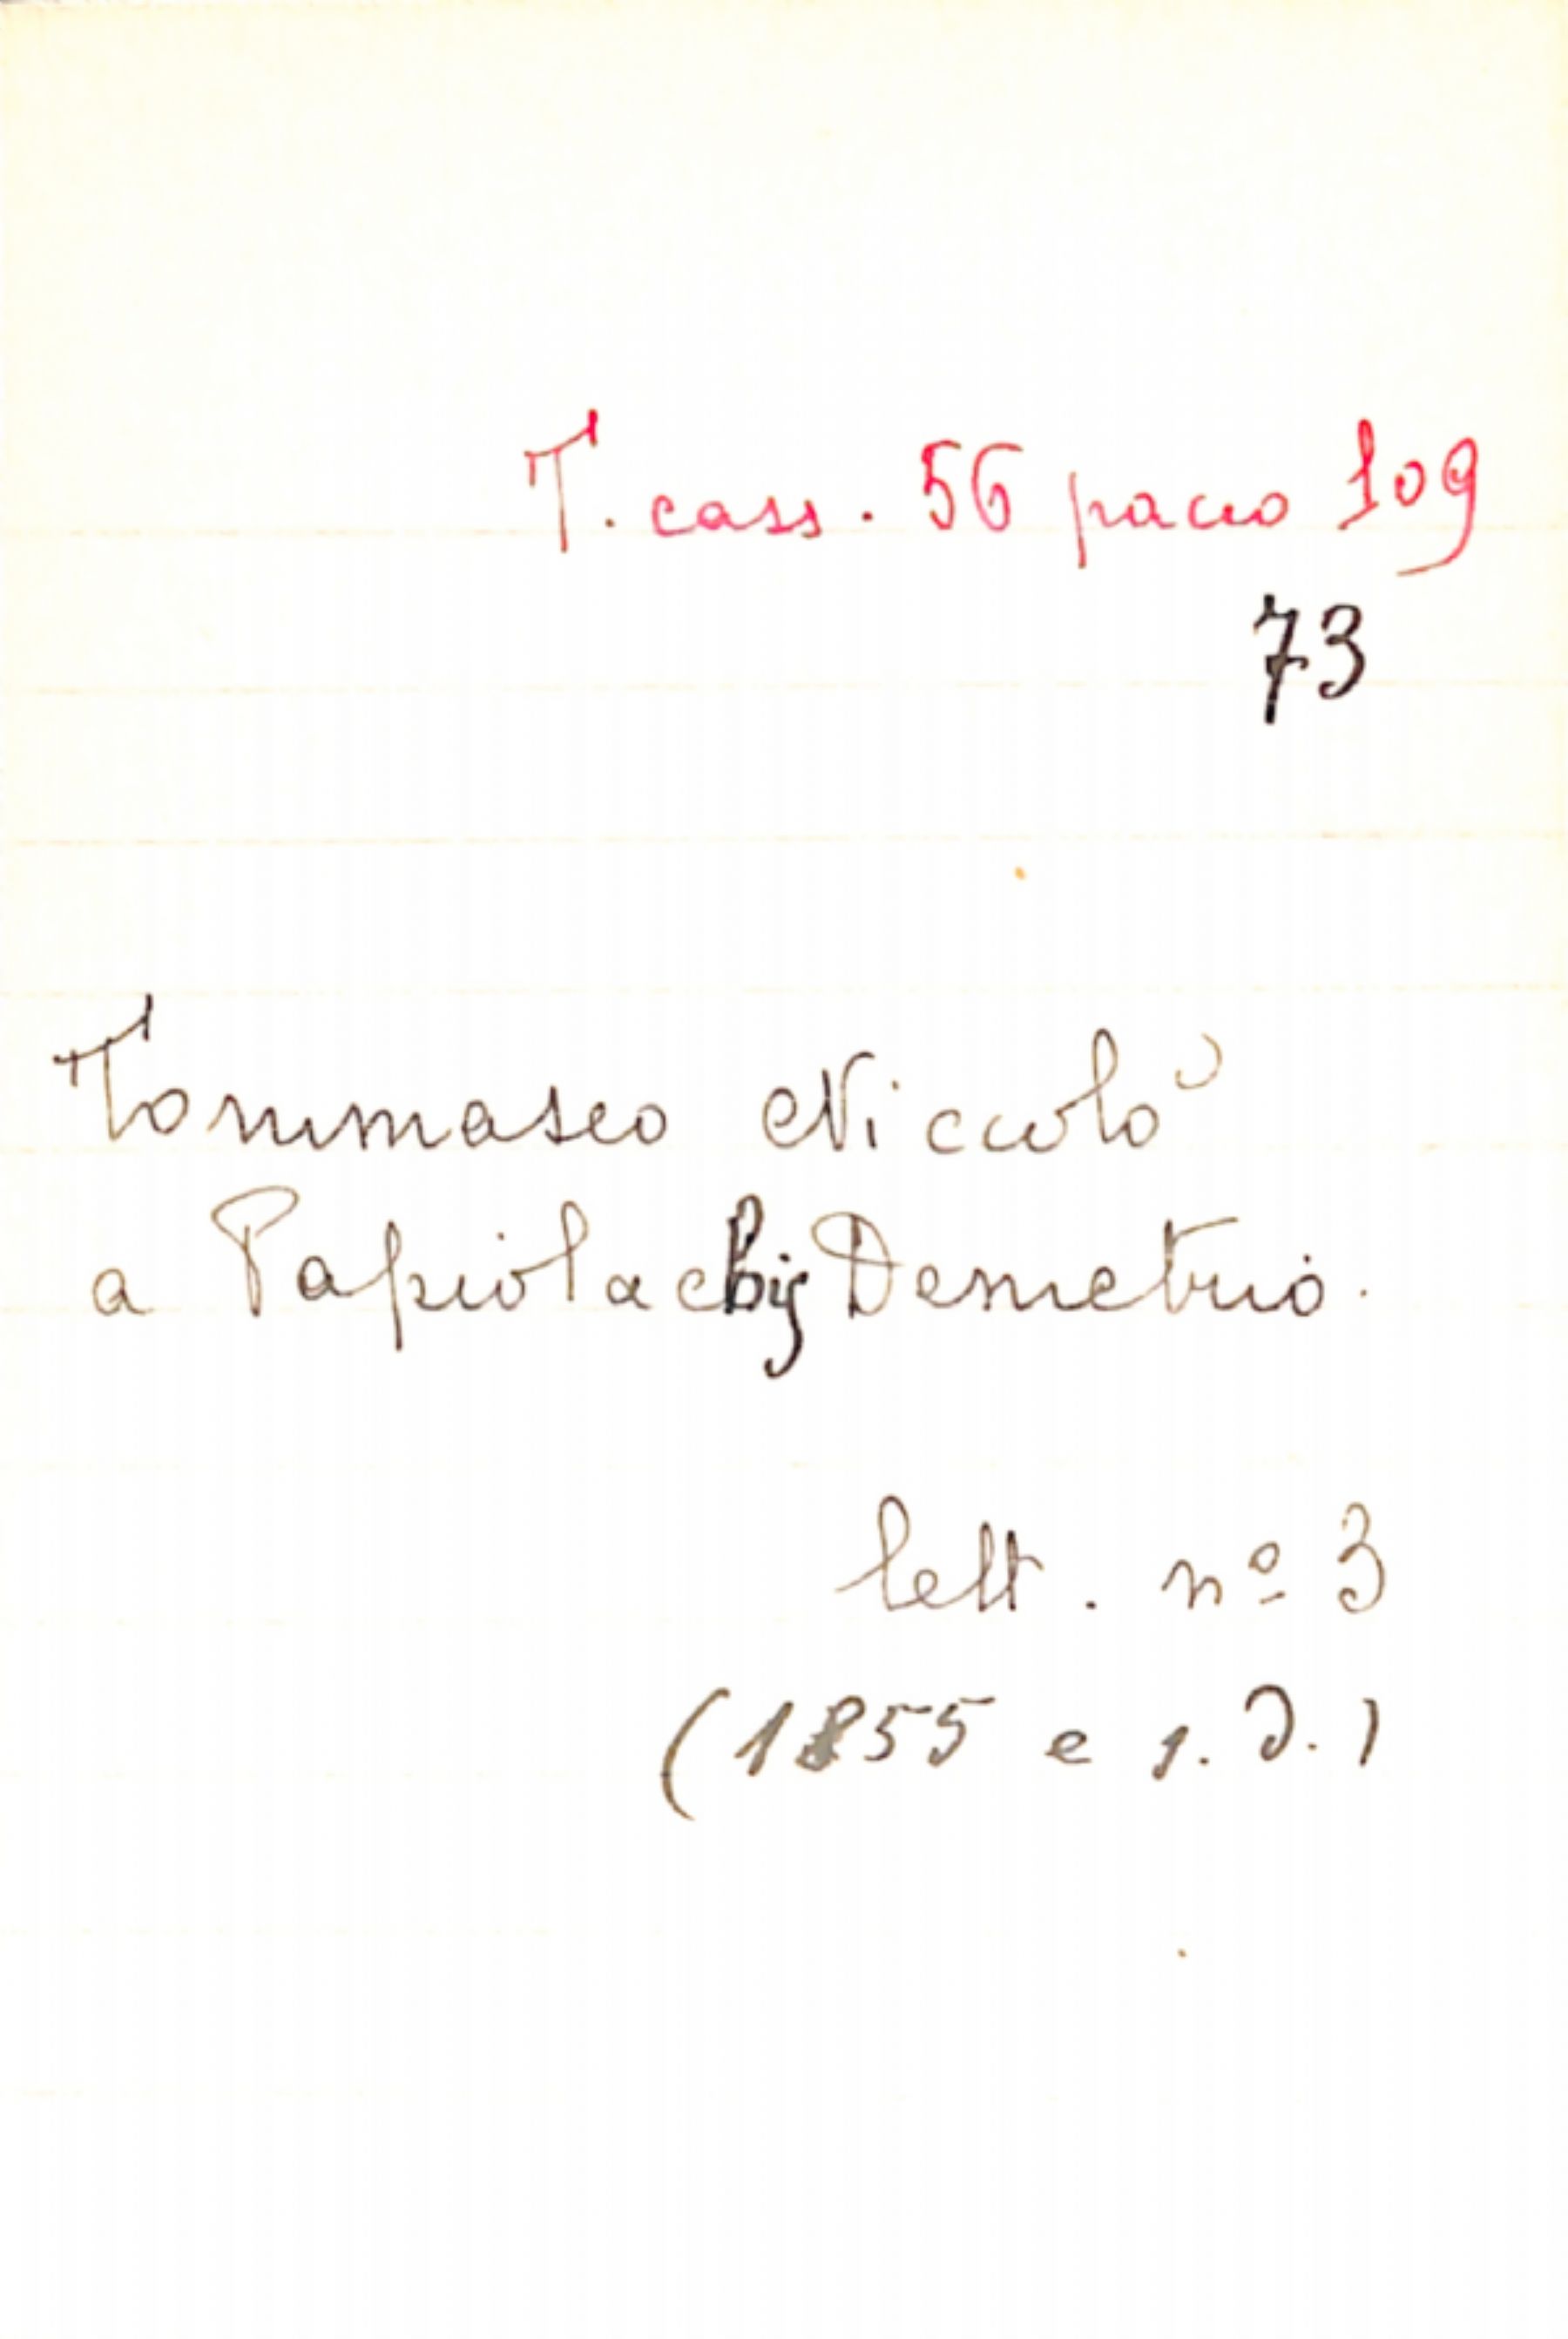 T. cass. 56 pacco 109
73
Tommaseo Niccolò
a Papiolachij Demetrio.
lett. nº 3
(1855 e s. d.)